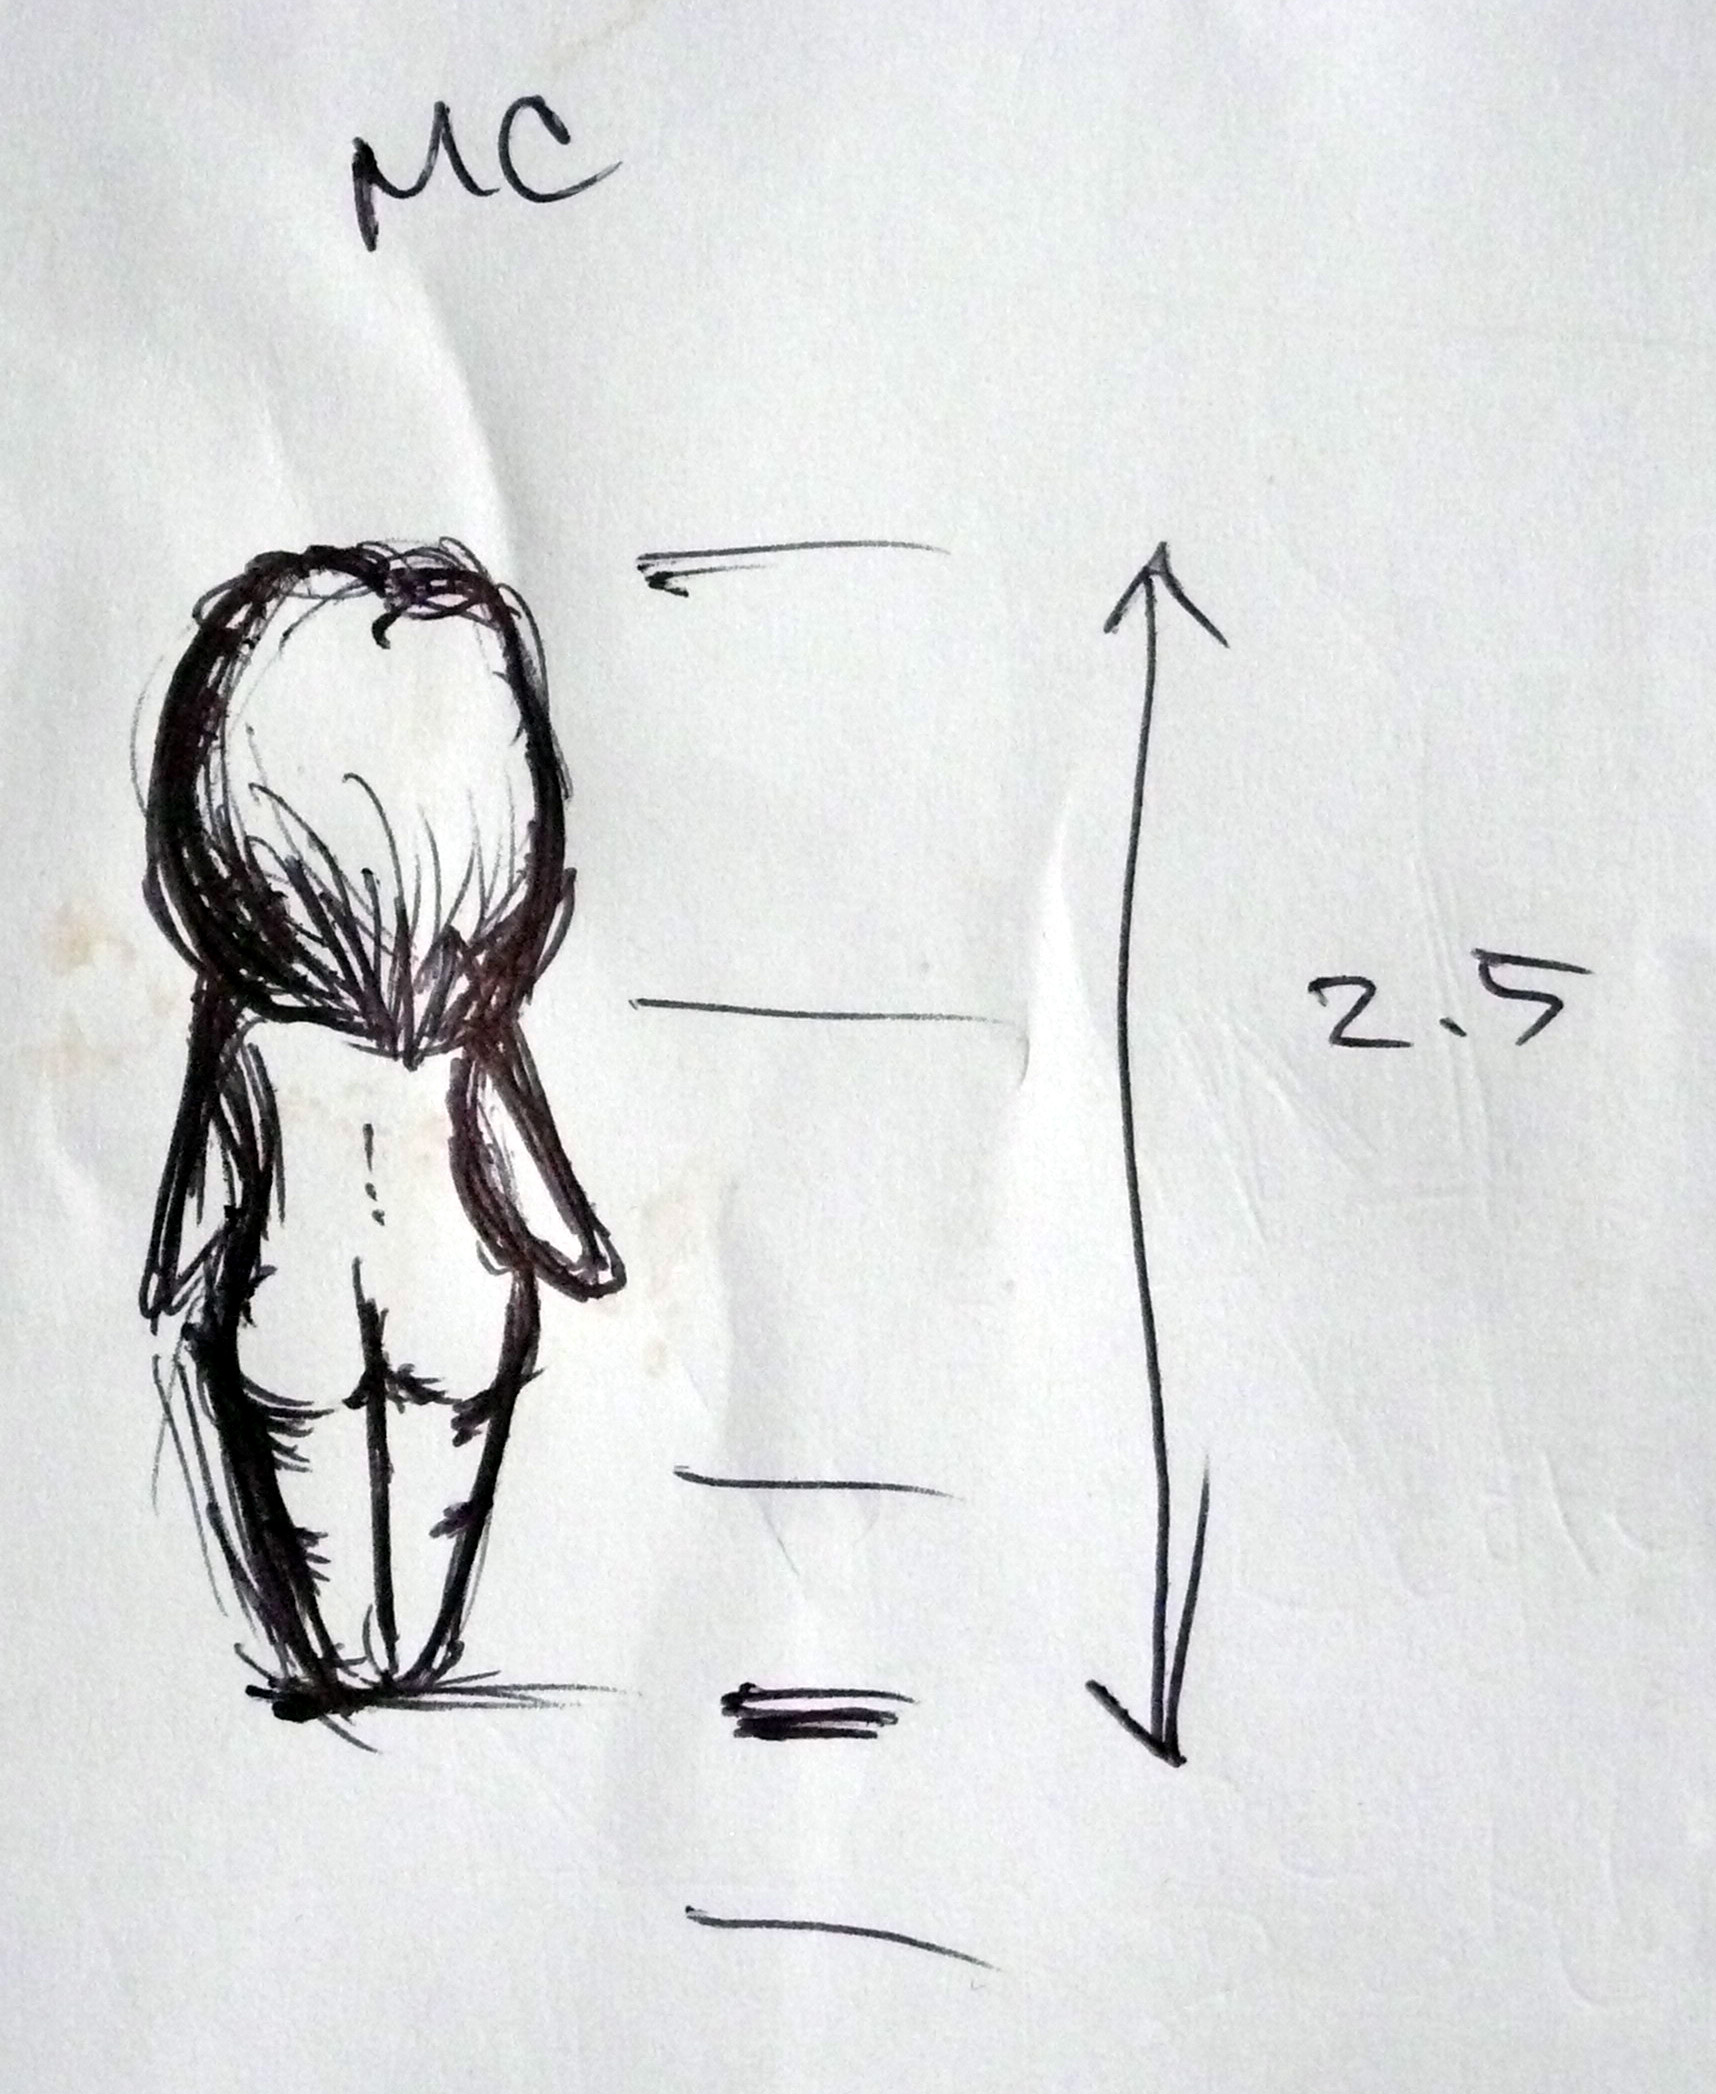 MC
2.5